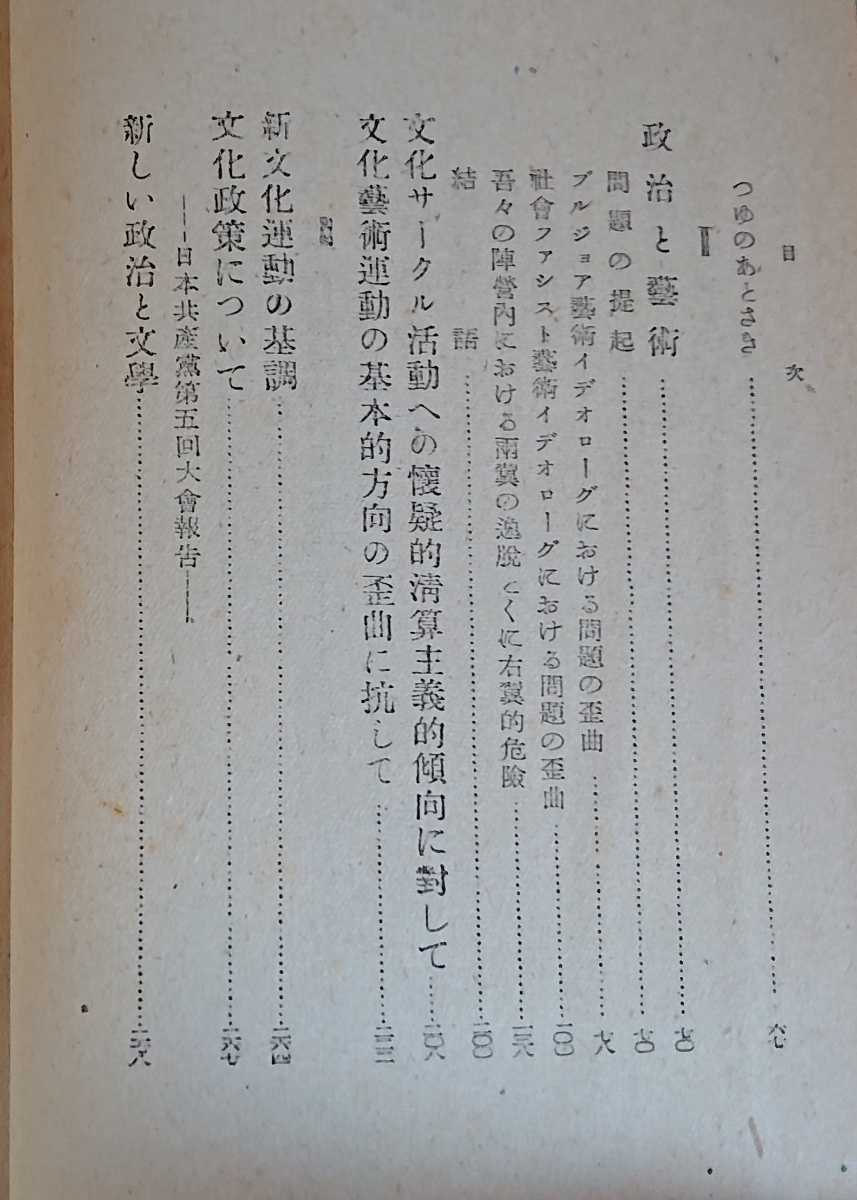 目次
つゆのあとさき……六七
Ⅱ
政治と藝術……七〇
問題の提起……七〇
ブルジョア藝術イデオローグにおける問題の歪曲……七八
社會ファシスト藝術イデオローグにおける問題の歪曲……一〇〇
吾々の陣營内における兩翼の逸脱とくに右翼的危險……
結語……二〇〇
文化サークル活動への懷疑的淸算主義的傾向に對して……二〇八
文化藝術運動の基本的方向の歪曲に抗して……
新文化運動の基調……二六四
文化政策について……二六七
——日本共產黨第五回大會報告——
新しい政治と文學……